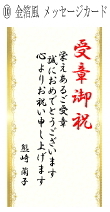 ⑩ 金箔風 メッセージカード
受章御祝
栄えあるご受章
誠におめでとうございます
心よりお祝い申し上げます
熊崎 蘭子